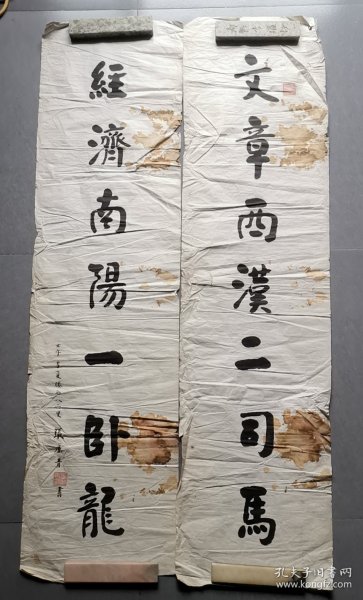 文章西漢二司馬
經濟南陽一卧龍
孔夫子旧书网
www.kongfz.com